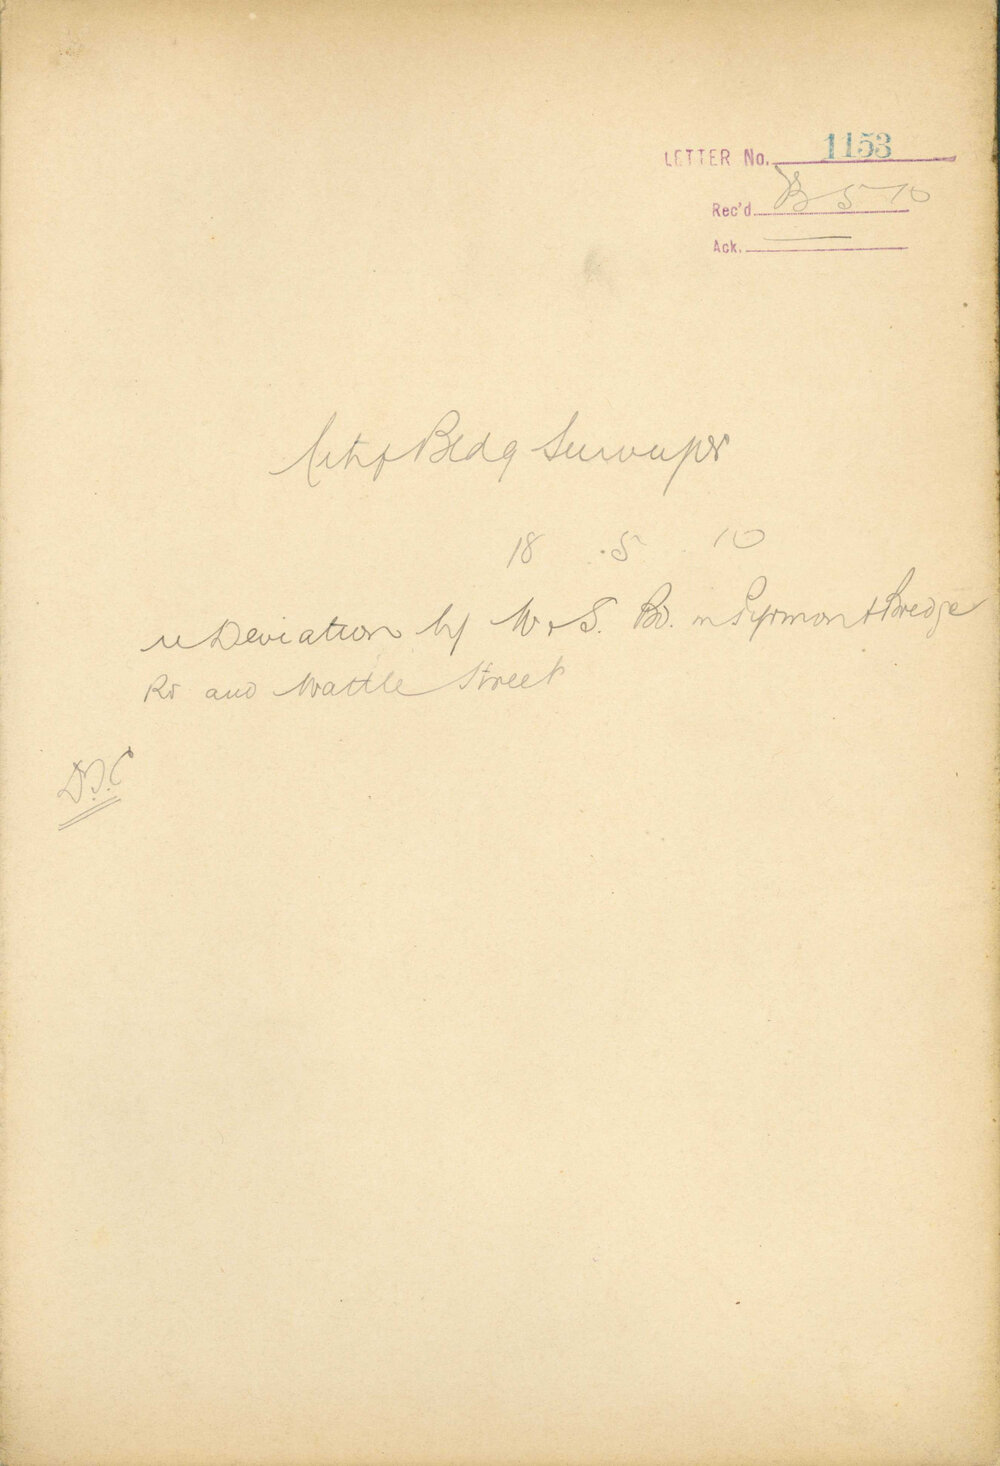 LETTER No. 1153
Rec'd 5 10
Ack.
City Bldg Surveyor
18 . 5 10
re Deviation by W & S. Bd. in Pyrmont Bridge
Rd and Wattle Street